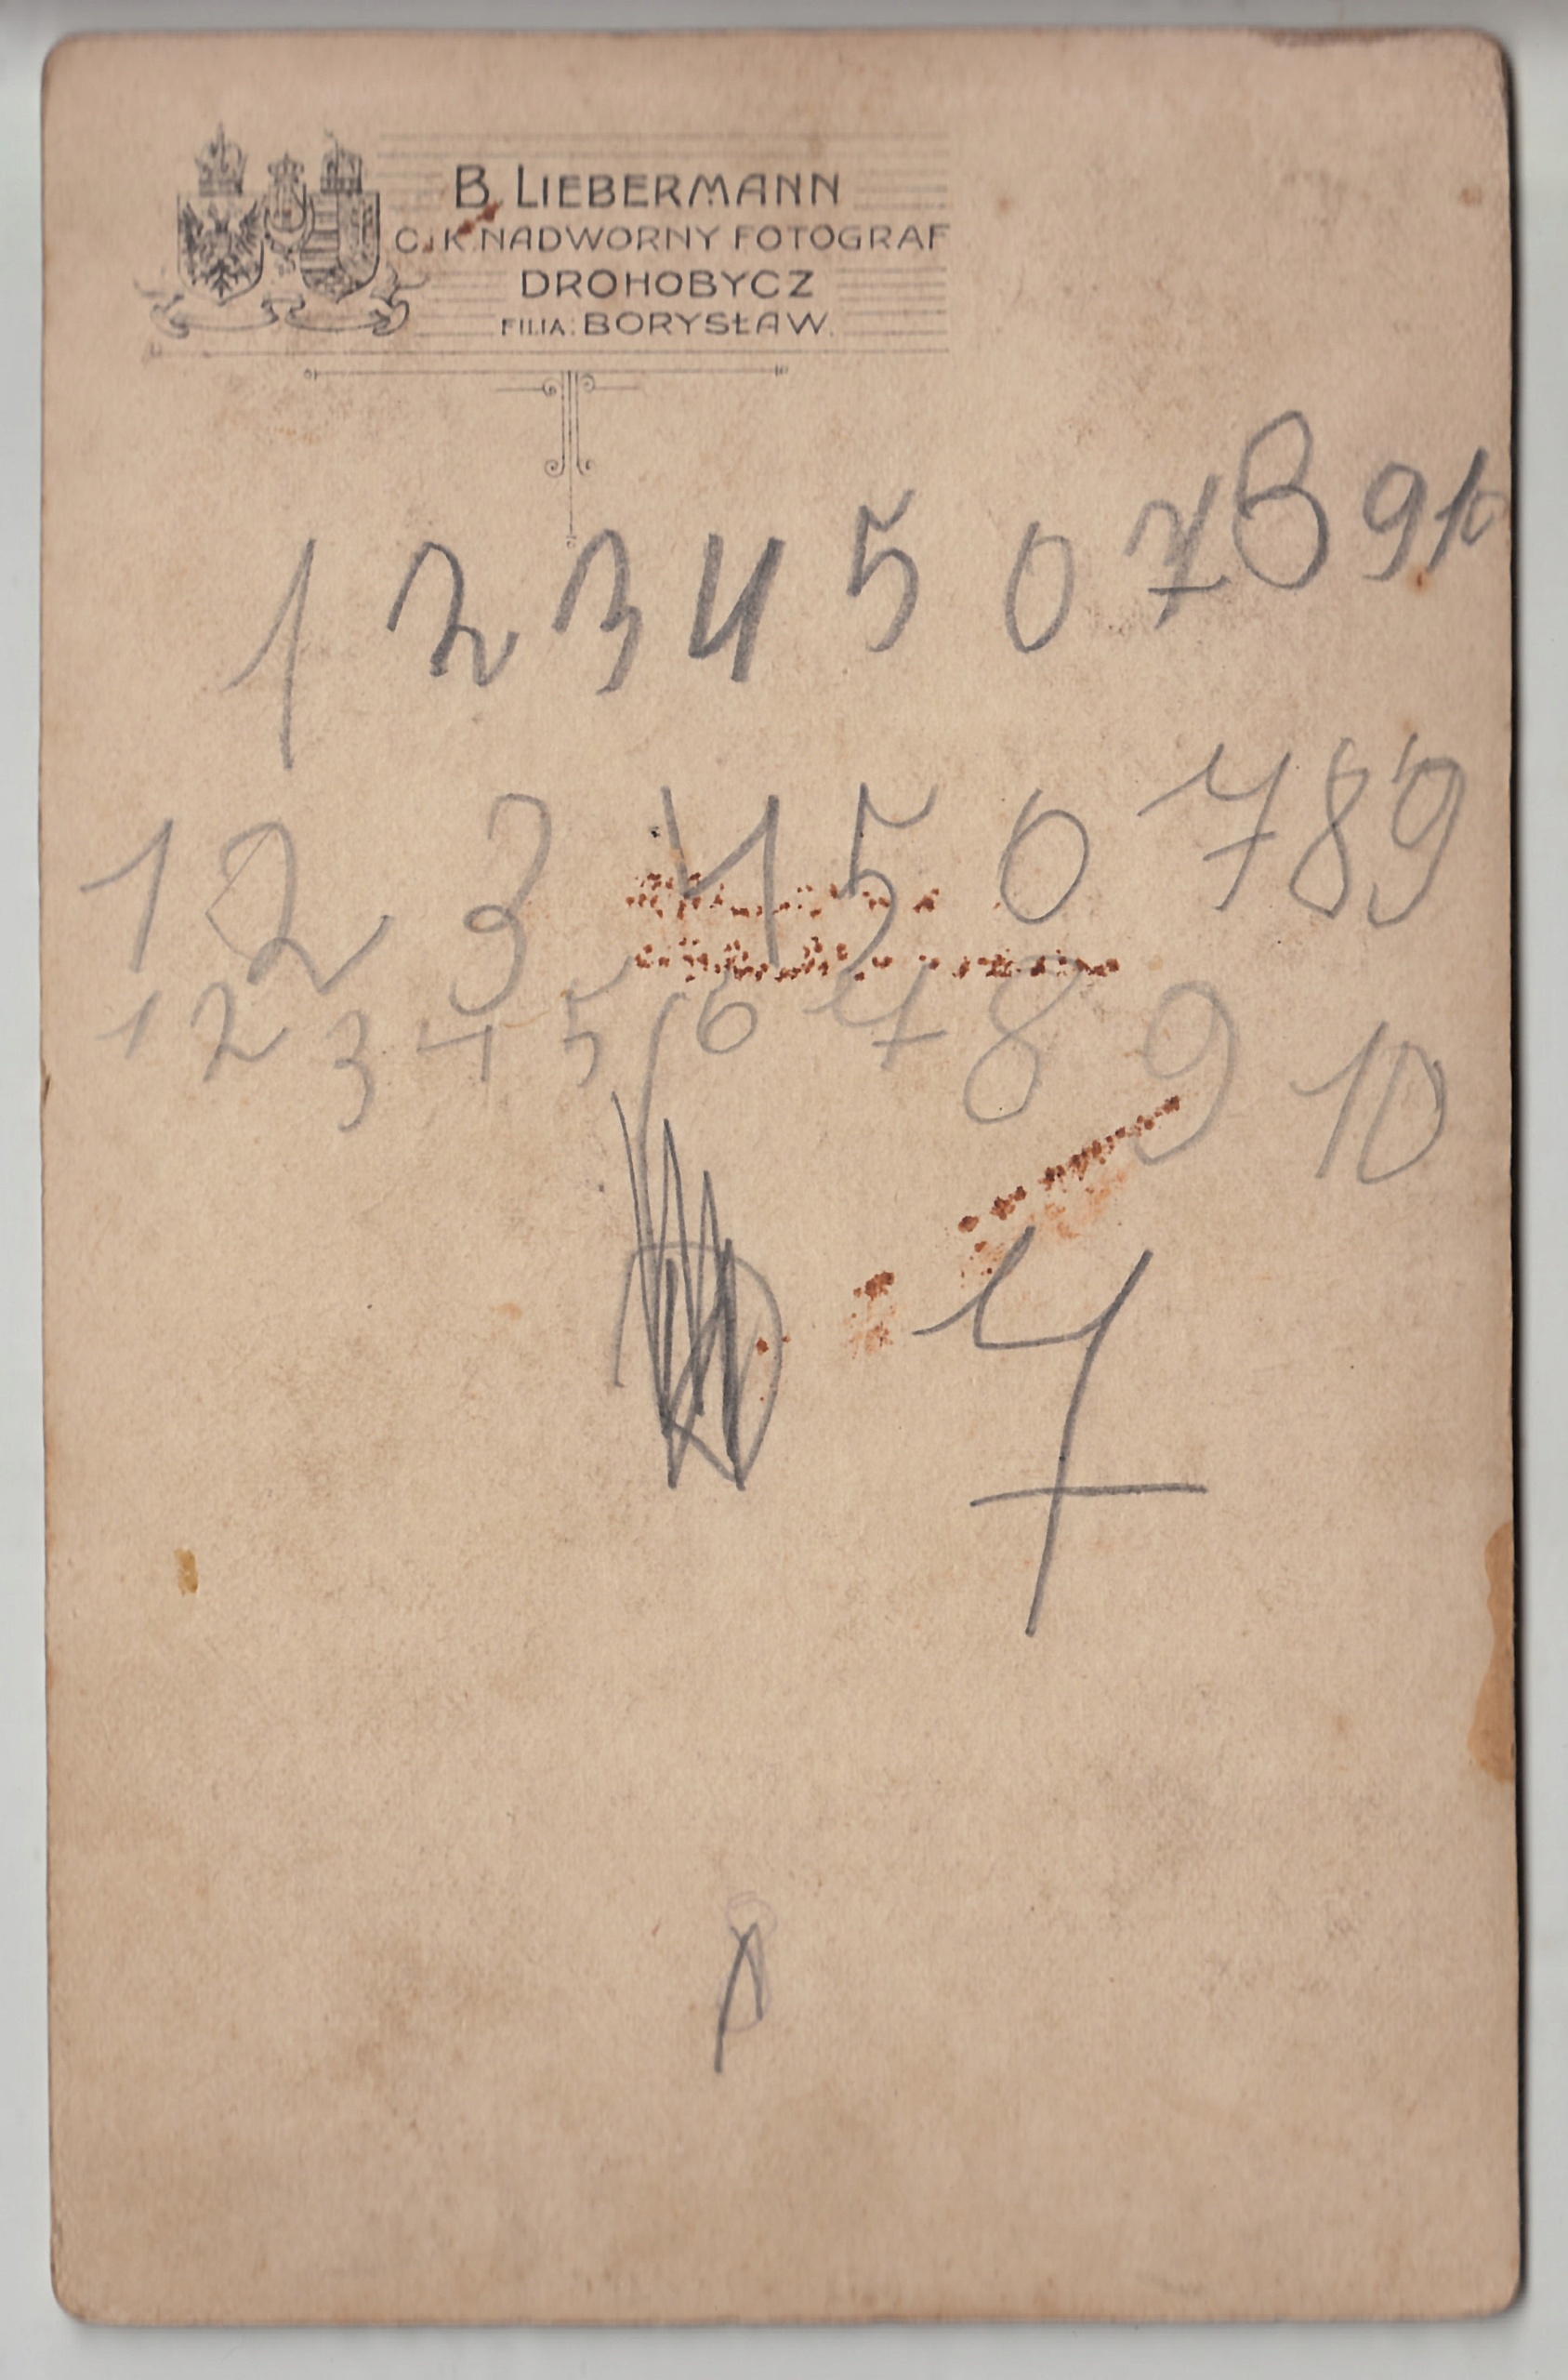 B. LIEBERMANN
C. K. NADWORNY FOTOGRAF
DROHOBYCZ
FILIA: BORYSŁAW.
1 2 3 4 5 0 7 8 9 10
1 2 3 4 5 0 7 8 9
1 2 3 4 5 6 7 8 9 10
7